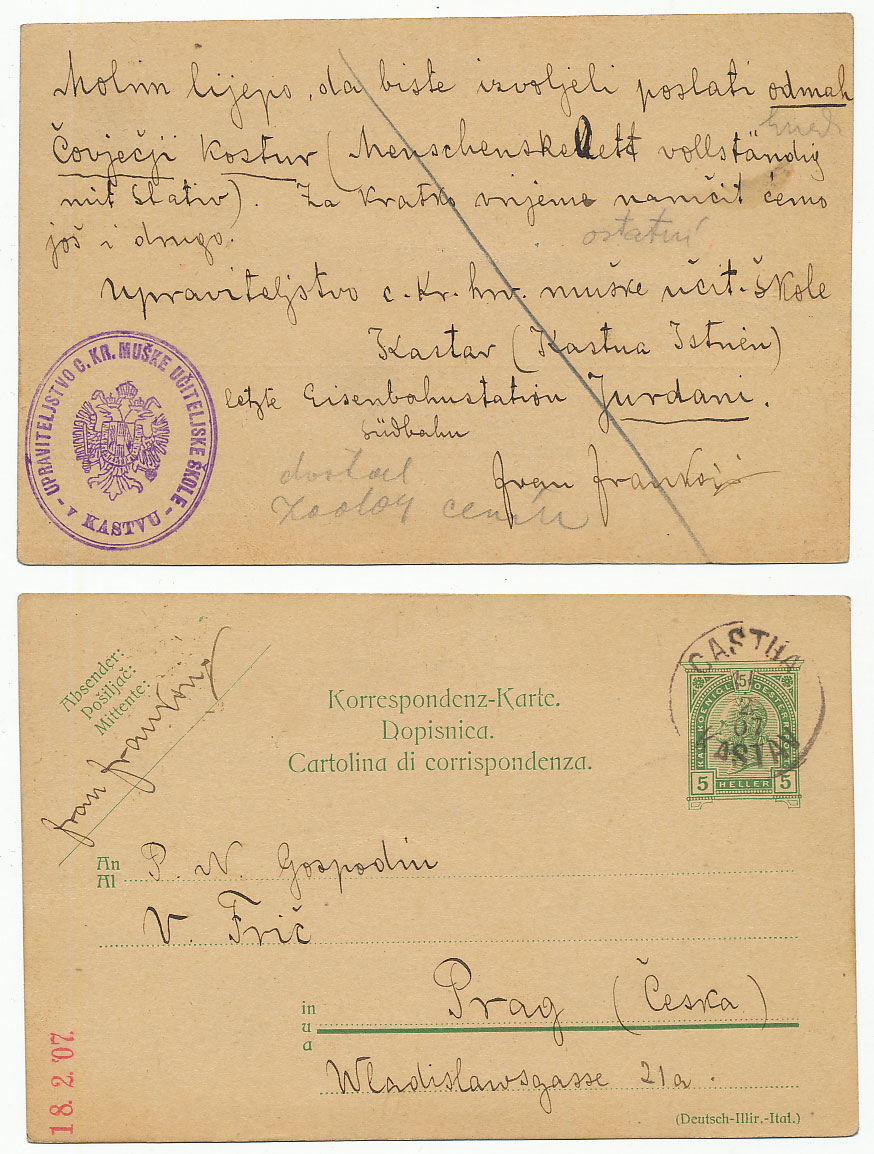 Molim lijepo, da biste izvoljeli poslati odmah
hned
Čovječji Kostur (Menschenskelett vollständig
mit Stativ). Za kratko vrijeme naručit ćemo
ostatní
još i drugo.
Upraviteljstvo c. kr. hrv. muške učit. škole
Kastav (Kastua Istrien)
letzte Eisenbahnstation Jurdani.
Südbahn
Fran Franković
dostal
zoolog cenín
UPRAVITELJSTVO C. KR. MUŠKE UČITELJSKE ŠKOLE
- v KASTVU -
Absender:
Pošiljač:
Mittente:
Fran Franković
Korrespondenz-Karte.
Dopisnica.
Cartolina di corrispondenza.
CASTUA
2
07
KASTAV
KAIS. KOENIGL. OESTERR. POST
5
5 HELLER 5
An P. N. Gospodin
Al
V. Frič
in Prag (Česka)
u
a
Wladislawsgasse 21a.
18. 2. '07.
(Deutsch-Illir.-Ital.)